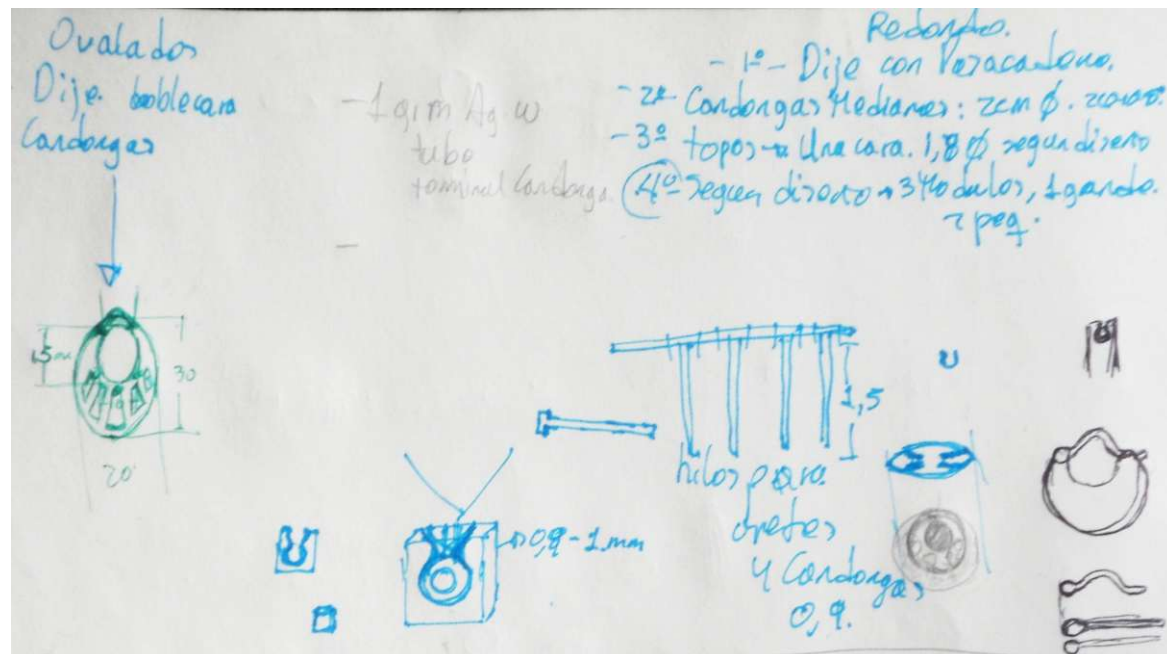 Ovalados
Dije. doblecara
Candongas
- 1 grm Ag. w
tubo
terminal Candonga.
Redondo.
- 1º - Dije con Pasacadena.
- 2º Candongas Medianas: 2cm Ø. 2caras.
- 3º topos → Una cara. 1,8 Ø segun diseno
4º - Segun diseno → 3 Modulos, 1 grande.
2 peq.
1,5
30
20
0,9 - 1 mm
1,5
hilos para
aretes
y Candongas
0,9.